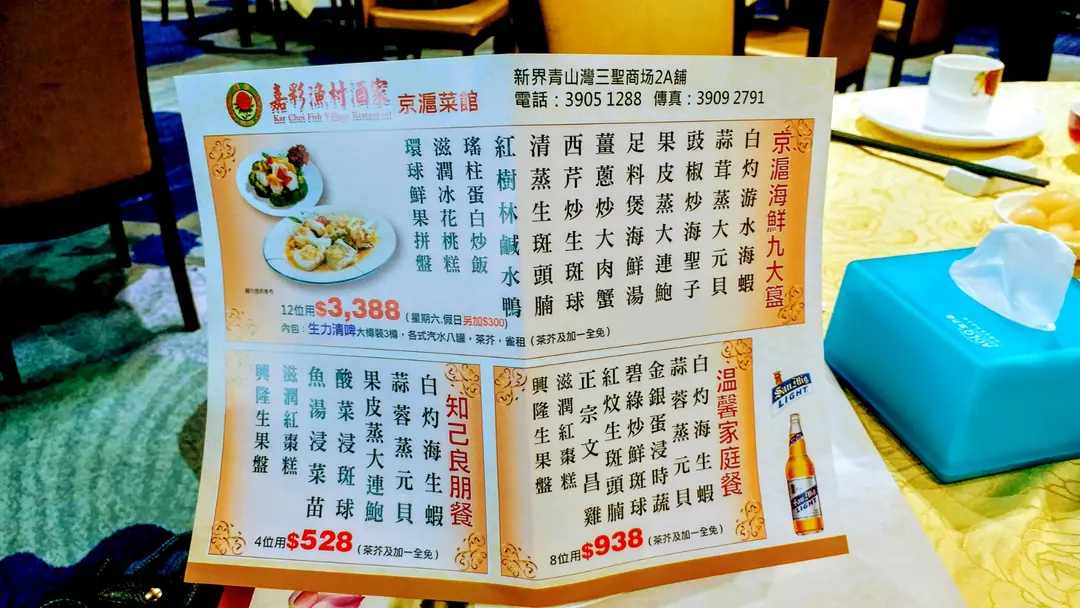 嘉彩漁村酒家
Kar Choi Fish Village Restaurant
京滬菜館
新界青山灣三聖商场2A舖
電話：3905 1288 傳真：3909 2791
京滬海鮮九大簋
白灼游水海蝦
蒜茸蒸大元貝
豉椒炒海聖子
果皮蒸大連鮑
足料煲海鮮湯
薑蔥炒大肉蟹
西芹炒生斑球
清蒸生斑頭腩
紅樹林鹹水鴨
瑤柱蛋白炒飯
滋潤冰花桃糕
環球鮮果拼盤
12位用$3,388（星期六,假日另加$300）
內包：生力清啤大樽裝3樽，各式汽水八罐，茶芥，雀租（茶芥及加一全免）
知己良朋餐
白灼海生蝦
蒜蓉蒸元貝
果皮蒸大連鮑
酸菜浸斑球
魚湯浸菜苗
滋潤紅棗糕
興隆生果盤
4位用$528（茶芥及加一全免）
溫馨家庭餐
白灼海生蝦
蒜蓉蒸元貝
金銀蛋浸時蔬
碧綠炒鮮斑球
紅炆生斑頭腩
正宗文昌雞
滋潤紅棗糕
興隆生果盤
8位用$938（茶芥及加一全免）
San Mig
LIGHT
San Mig
LIGHT